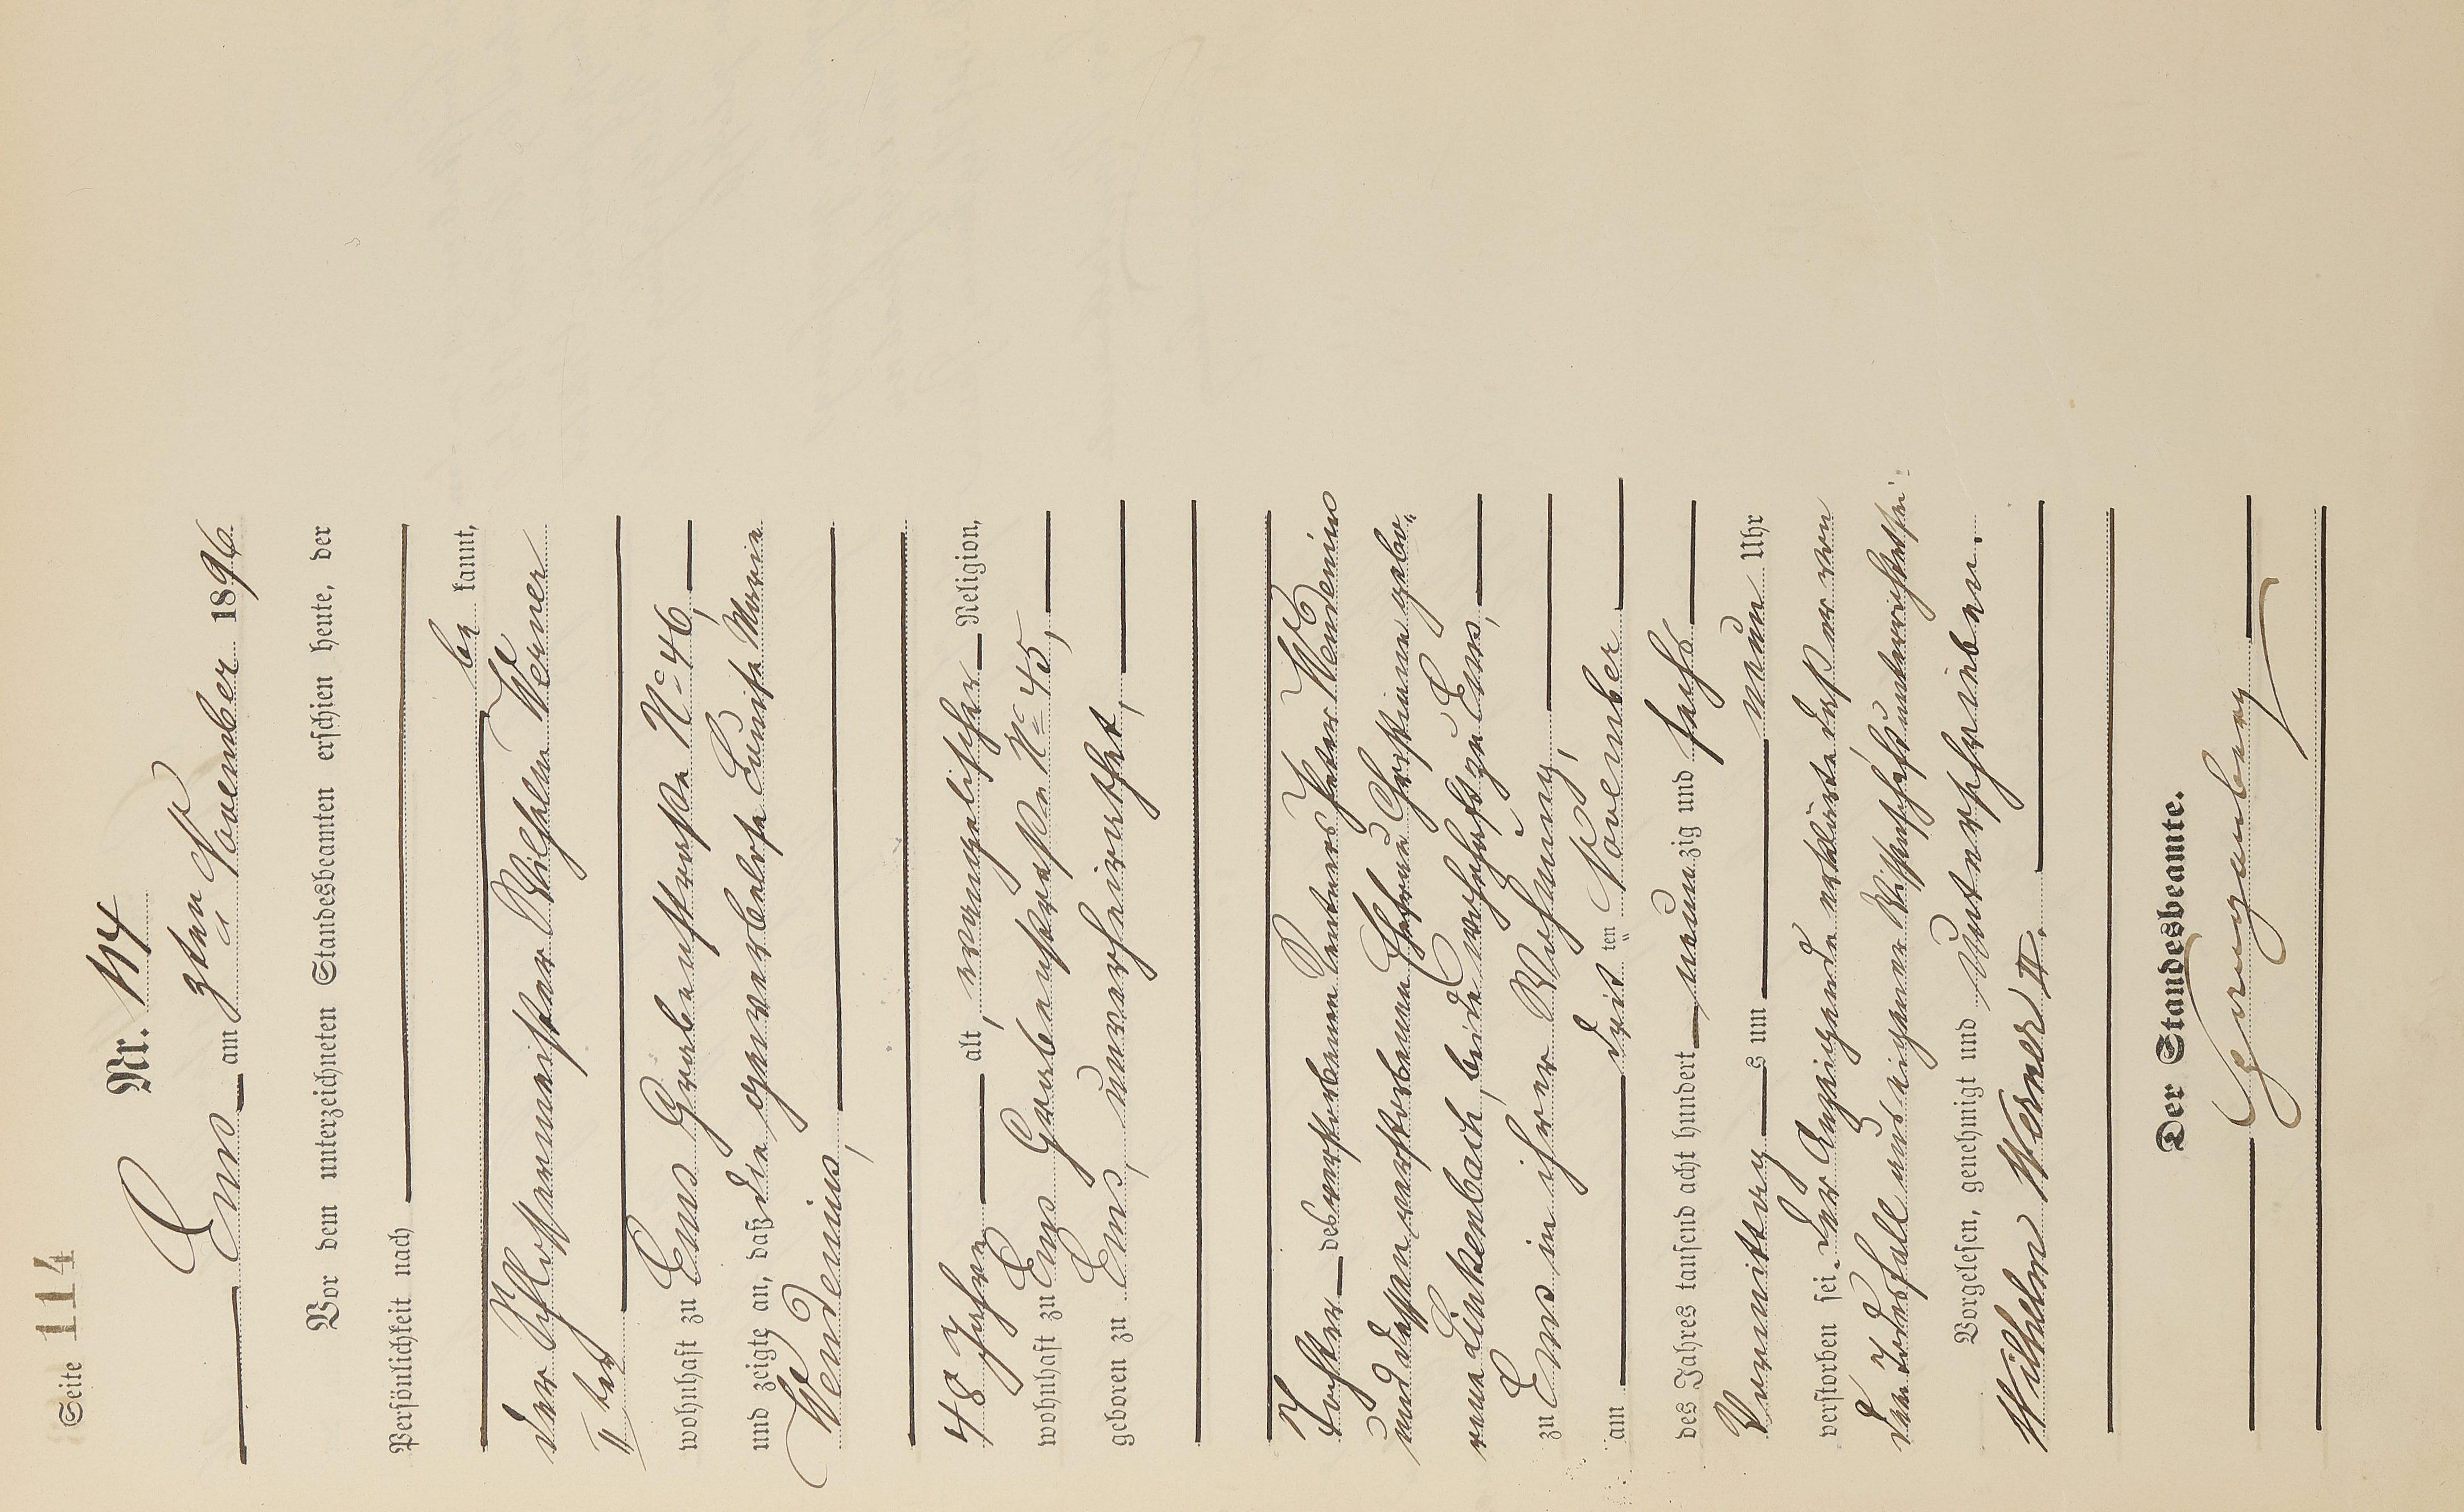 Seite 114
Nr. 114
Ems am 3ten November 1896
Vor dem unterzeichneten Standesbeamten erschien heute, der
Persönlichkeit nach
be kannt,
der Schlossermeister Wilhelm Werner
II ter
wohnhaft zu Ems Grabenstrasse No 46,
und zeigte an, daß die gewerbelose Luise Marie
Wendenius,
48 Jahre alt, evangelischer Religion,
wohnhaft zu Ems Grabenstrasse No 45,
geboren zu Ems, unverheirathet,
Tochter des verstorbenen Rentners Peter Wendenius
und dessen verstorbenen Ehefrau Christiane gebo-
rene Linkenbach, beide wohnhaft zu Ems,
zu Ems in ihrer Wohnung,
am drit ten November
des Jahres tausend acht hundert neunzig und sechs
Vormittags um neun Uhr
verstorben sei. Der Anzeigende erklärte daß er von
dem Todesfall aus eigener Wissenschaft unterrichtet sei.
Vorgelesen, genehmigt und Unterschrieben.
Wilhelm Werner II.
Der Standesbeamte.